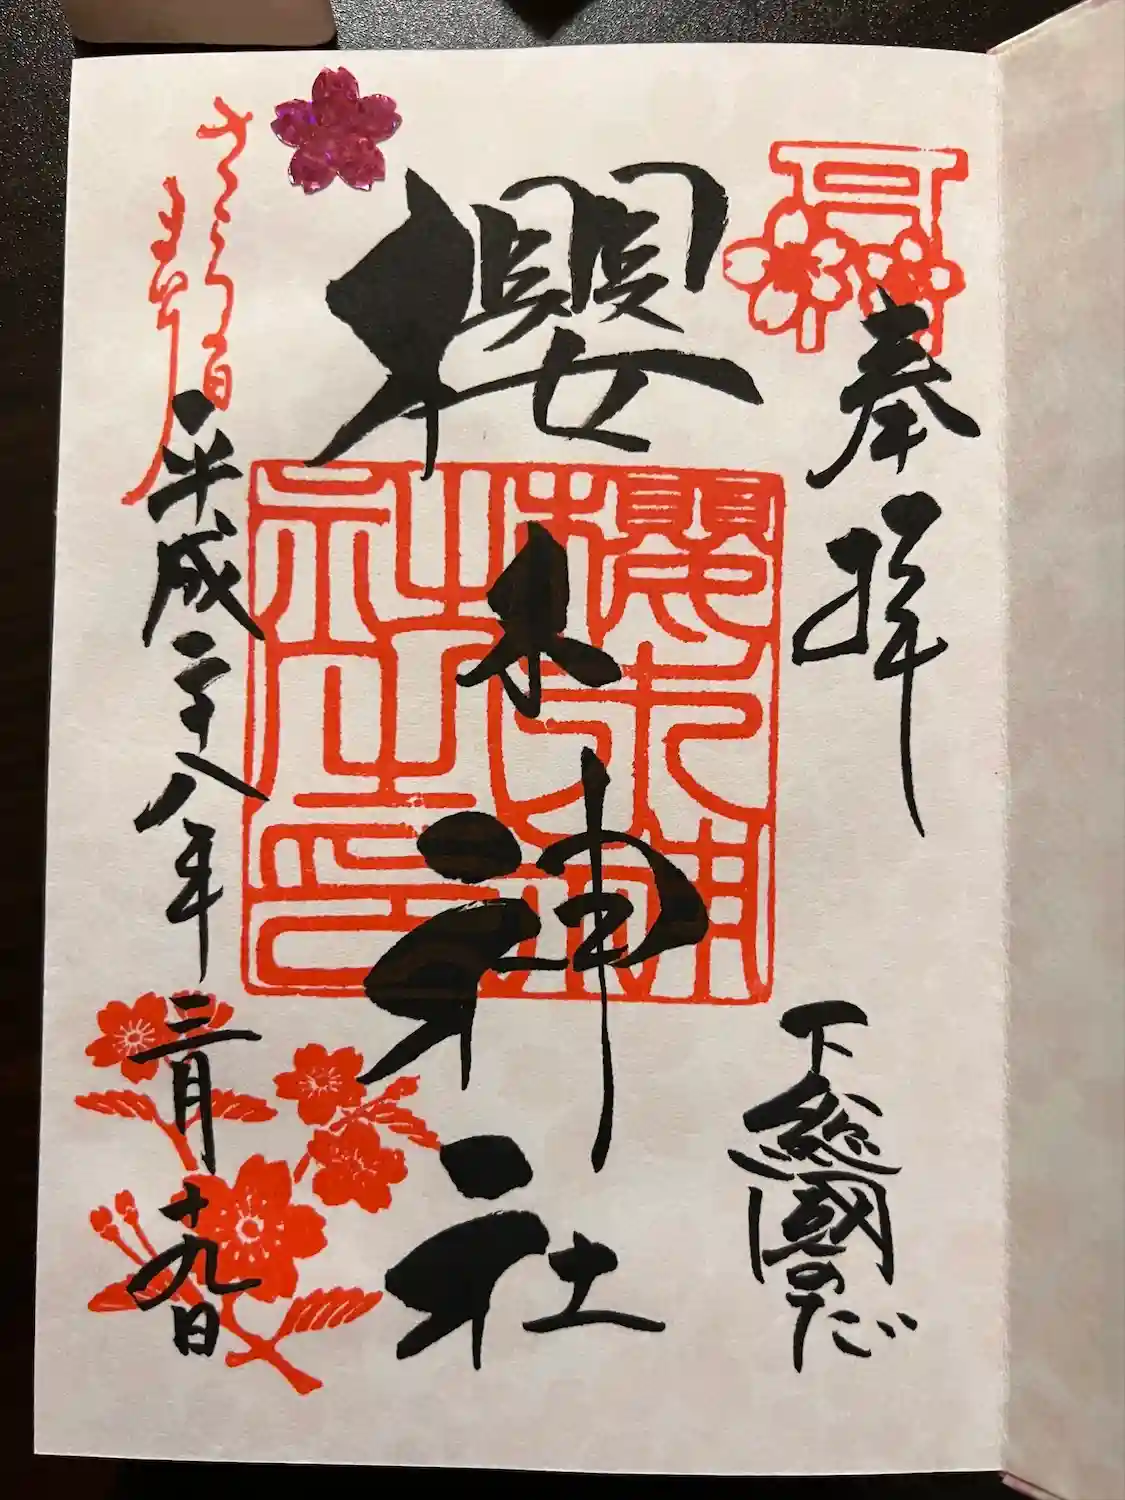 奉拝
下総國のだ
櫻木神社
平成二十八年三月十九日
さくらの日
まいり